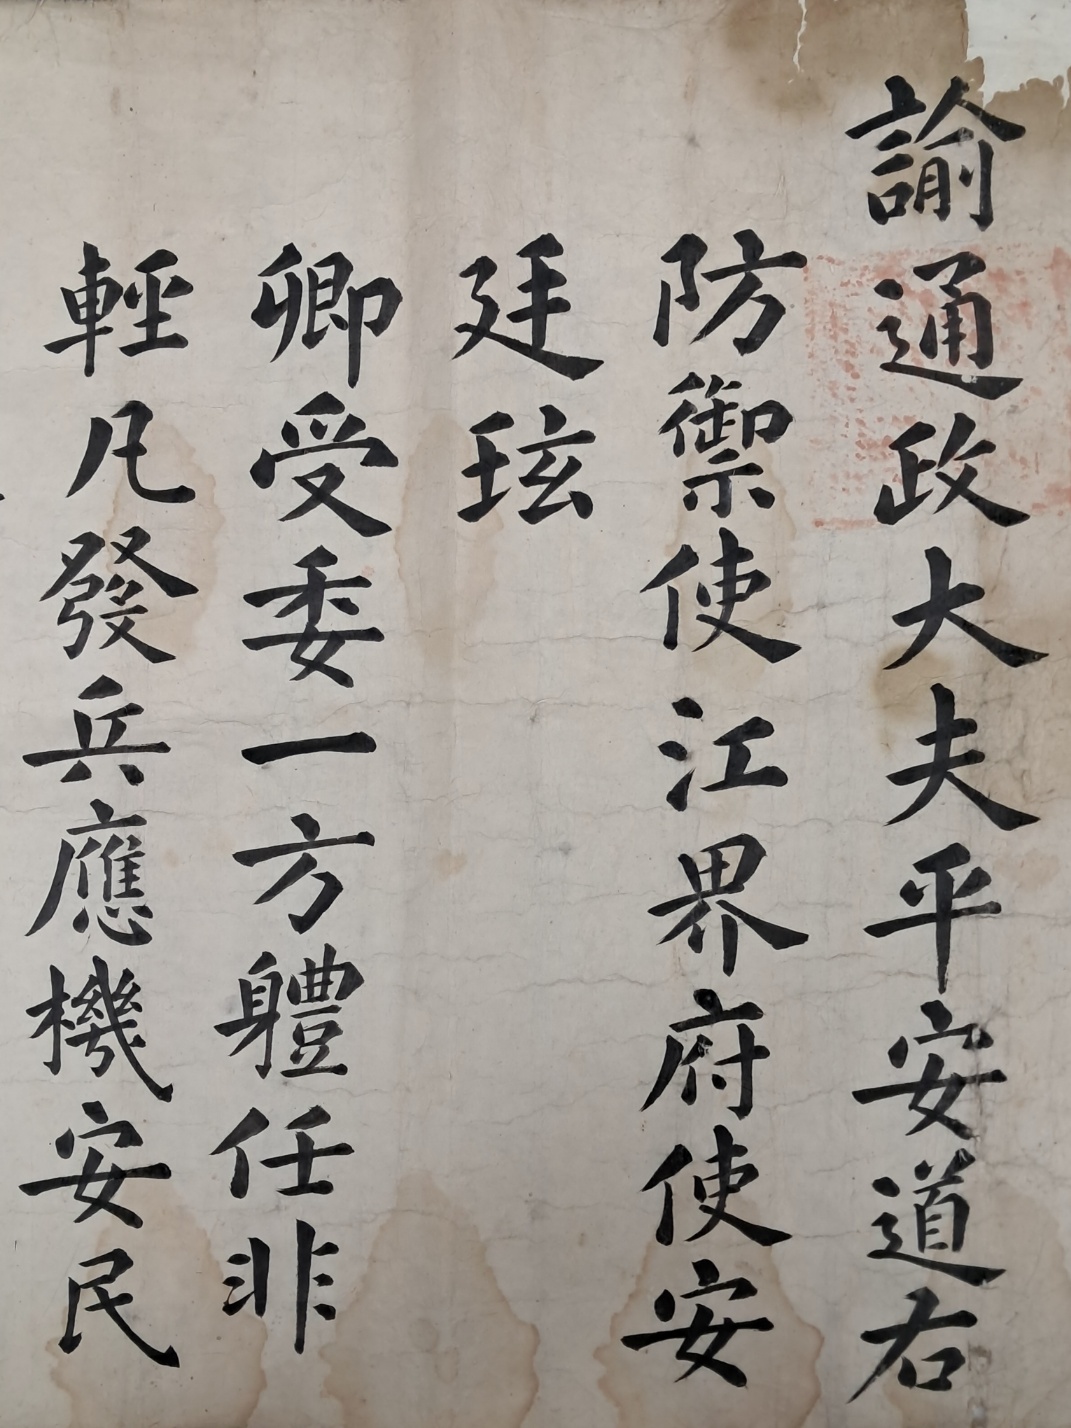 諭通政大夫平安道右
防禦使江界府使安
廷玹
卿受委一方軆任非
輕凡發兵應機安民